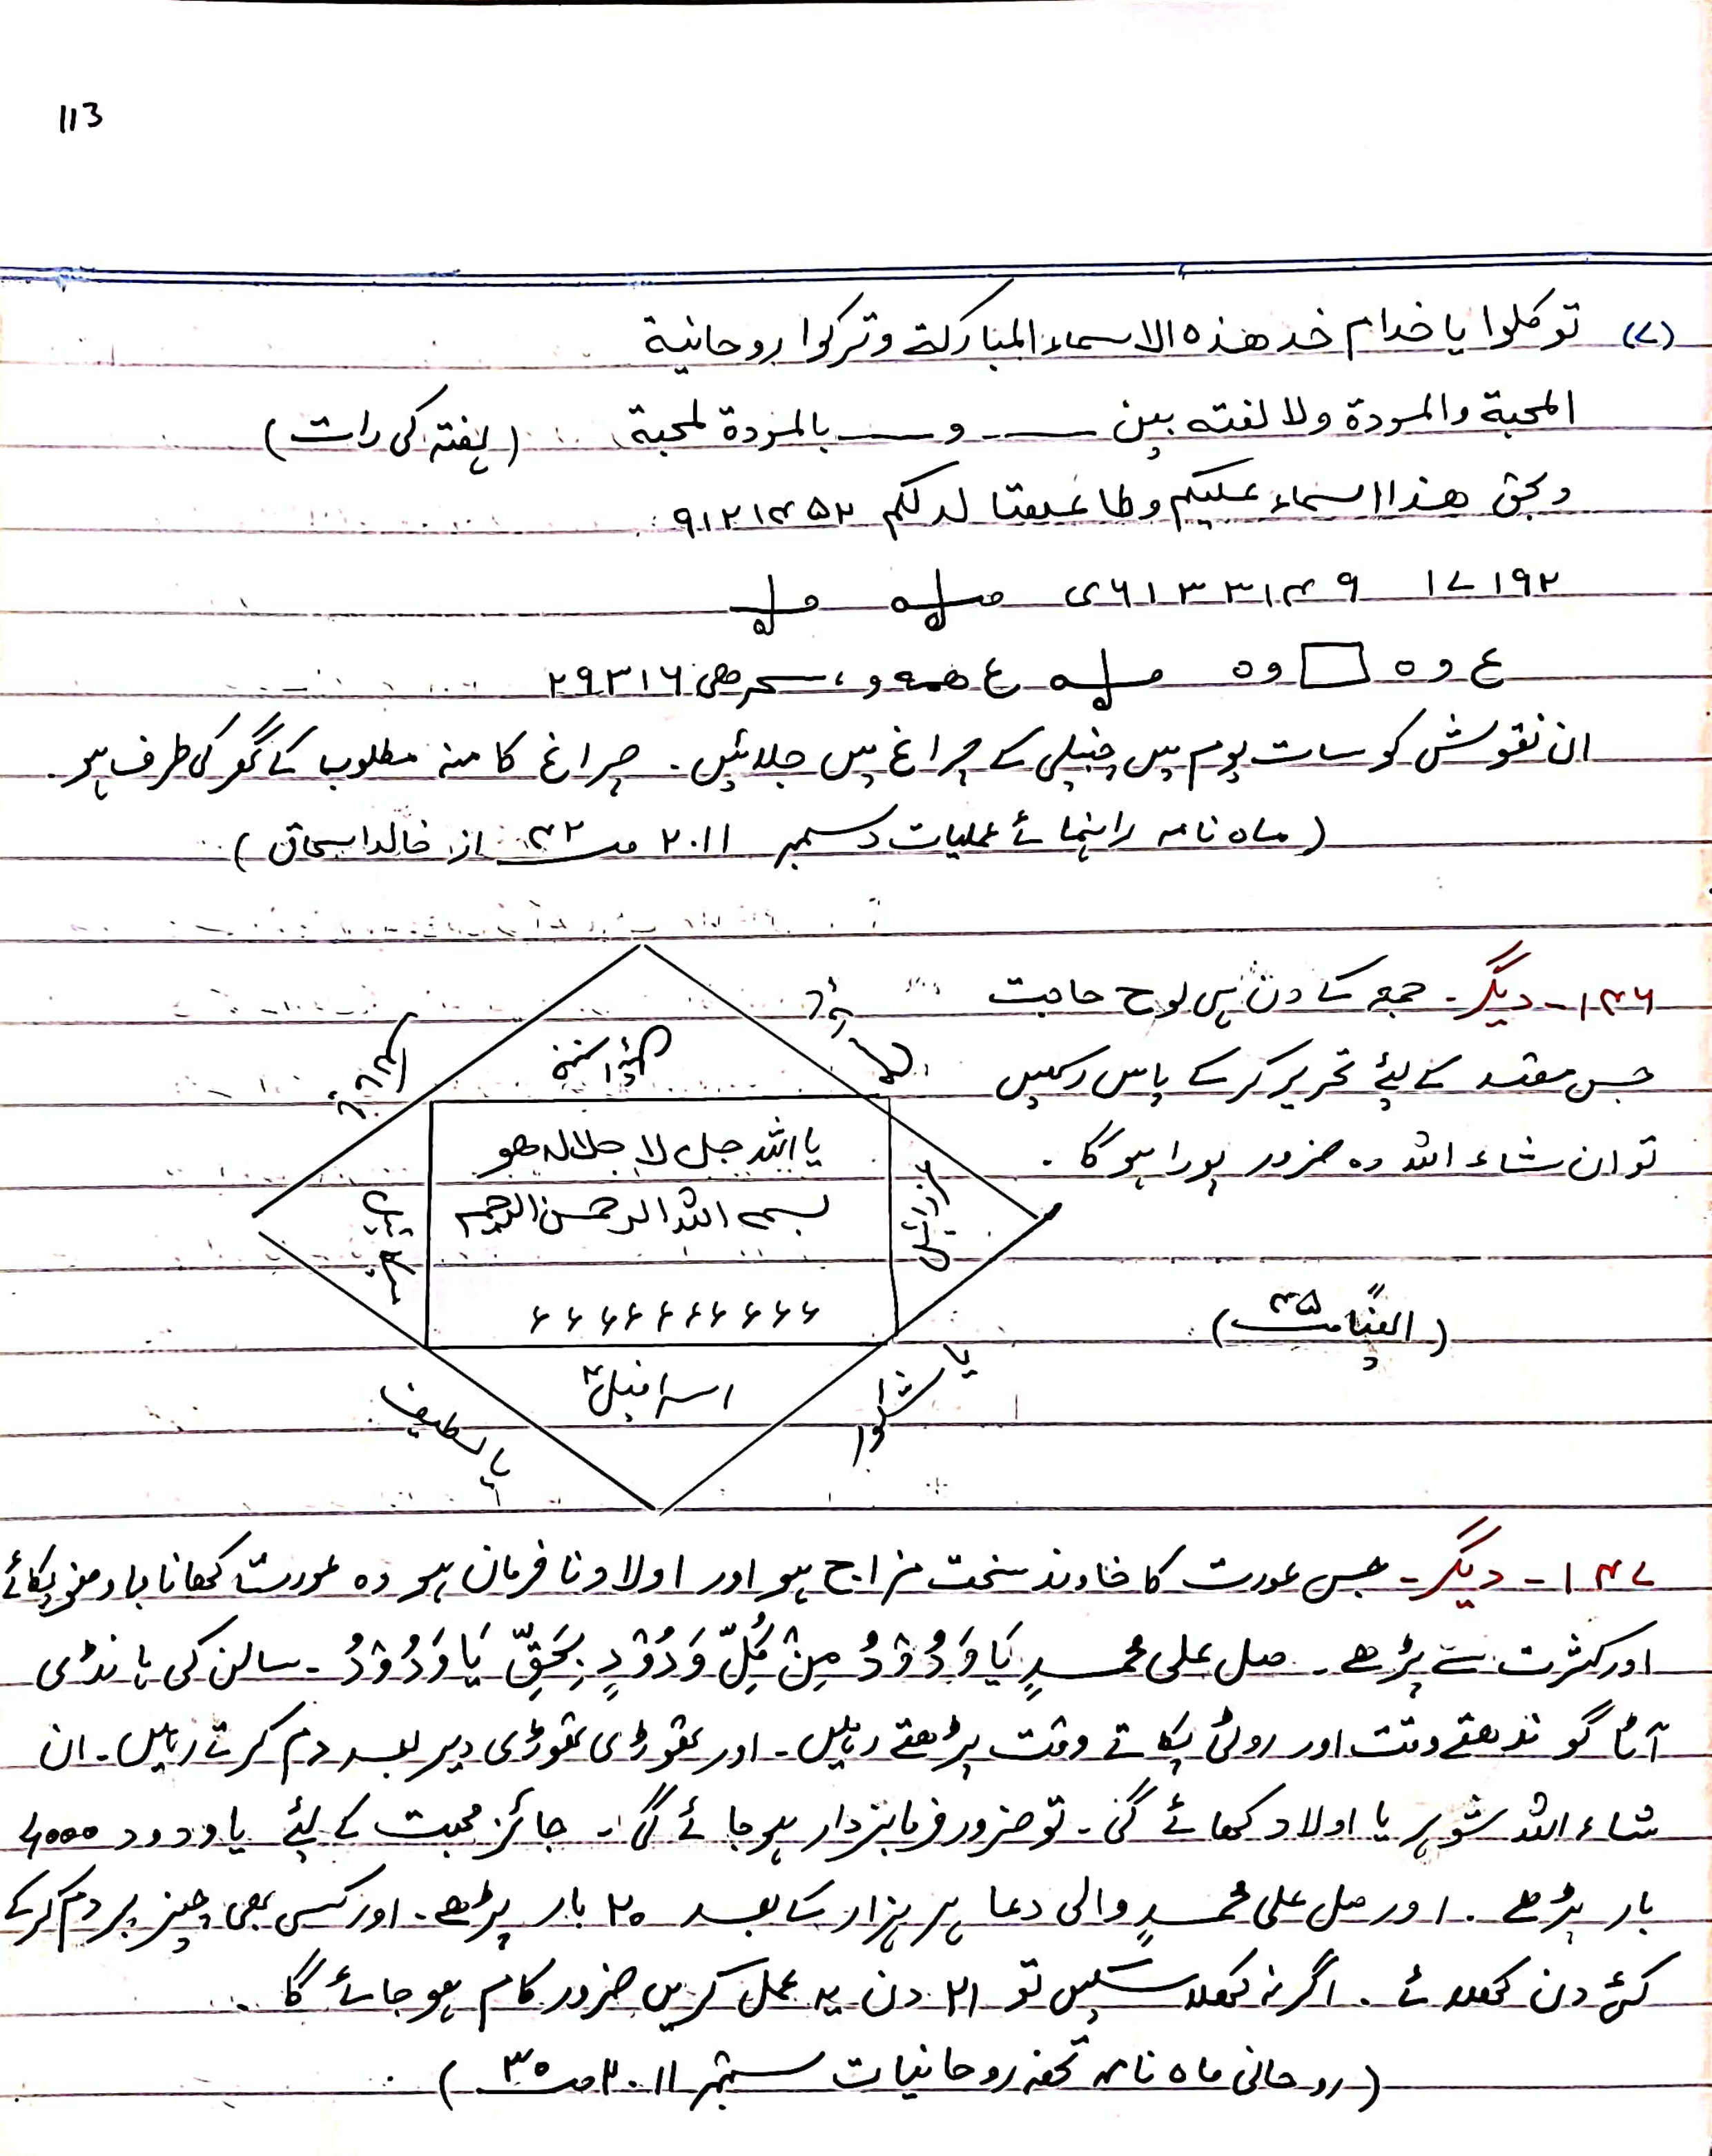 113
(۷) توکلوا یا خدام خد ھذہ الاسماء المبارکۃ وترکوا روحانیۃ
المحبۃ والمودۃ ولا لفتہ بین ــــ و ــــ بالمودۃ لمحبۃ (ہفتہ کی رات)
وبحق ھذا اسماء علیکم وطا عیقتا لد لکم ۹۱۲۱۴۵۲
۱۷۱۹۲ ۶۱۳۳۱۴۹ی
ع و ہ وہ ع ھمہ و ۲۹۳۱۶
ان نقوش کو سات یوم میں چنبیلی کے چراغ میں جلائیں۔ چراغ کا منہ مطلوب کے گھر کی طرف ہو۔
(ماہ نامہ راہنمائے عملیات دسمبر ۲۰۱۱ صـ ۴۲ از خالد اسحاق)
۱۴۶۔ دیگر۔ جمعے کے دن یہی لوح حاجت
جس مقصد کے لیئے تحریر کرکے پاس رکھیں
تو ان شاء اللہ وہ ضرور پورا ہوگا۔
یا اللہ جل لا جلالہ ھو
بسم اللہ الرحمن الرحیم
۶ ۶ ۶ ۶ ۶ ۶ ۶ ۶ ۶ ۶
عزرائیل
اسرافیل
یا شکور
یا لطیف
(ایضاً صـ ۴۵)
۱۴۷۔ دیگر۔ جس عورت کا خاوند سخت مزاج ہو اور اولاد نافرمان ہو وہ عورت کھانا باوضو پکائے
اور کثرت سے پڑھے۔ صل علی محمدٍ یَا وَدُوْدُ مِنْ کُلِّ وَدُوْدٍ بِحَقِّ یَا وَدُوْدُ۔ سالن کی ہانڈی
آٹا گوندھتے وقت اور روٹی پکاتے وقت پڑھتے رہیں۔ اور تھوڑی تھوڑی دیر بعد دم کرتے رہیں۔ ان
شاء اللہ شوہر یا اولاد کھائے گی۔ تو ضرور فرمابزدار ہوجائے گی۔ جائز محبت کے لیئے یاودود ۷۰۰۰
بار پڑھے۔ اور صل علی محمدٍ والی دعا ہر ہزار کے بعد ۲۰ بار پڑھے۔ اور کسی بھی چیز پر دم کرکے
کئی دن کھلائے۔ اگر نہ کھلا سکیں تو ۲۱ دن یہ عمل کریں ضرور کام ہوجائے گا۔
(روحانی ماہ نامہ تحفہ روحانیات ستمبر ۲۰۱۱ صـ ۳۰)